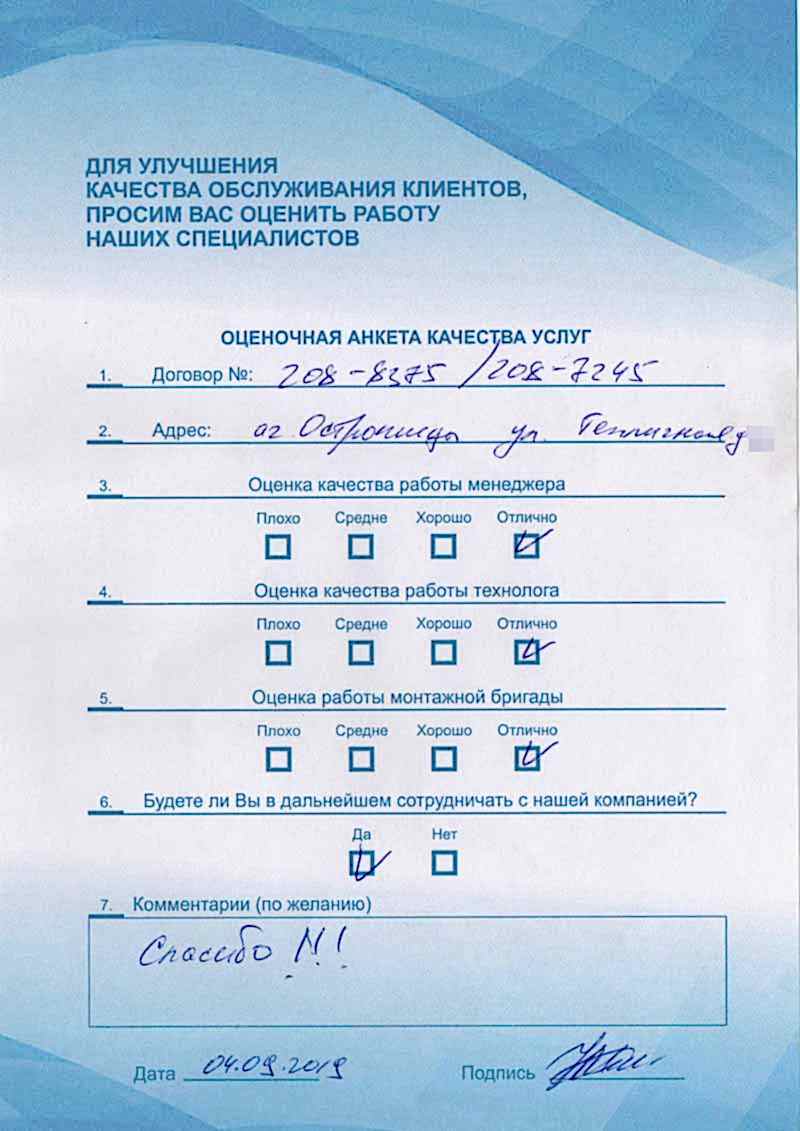 ДЛЯ УЛУЧШЕНИЯ
КАЧЕСТВА ОБСЛУЖИВАНИЯ КЛИЕНТОВ,
ПРОСИМ ВАС ОЦЕНИТЬ РАБОТУ
НАШИХ СПЕЦИАЛИСТОВ
ОЦЕНОЧНАЯ АНКЕТА КАЧЕСТВА УСЛУГ
1. Договор №: 208-8375 / 208-7245
2. Адрес: аг. Острошицы ул. Тепличная д
3. Оценка качества работы менеджера
Плохо Средне Хорошо Отлично
4. Оценка качества работы технолога
Плохо Средне Хорошо Отлично
5. Оценка работы монтажной бригады
Плохо Средне Хорошо Отлично
6. Будете ли Вы в дальнейшем сотрудничать с нашей компанией?
Да Нет
7. Комментарии (по желанию)
Спасибо !!!
Дата 04.09.2019 Подпись